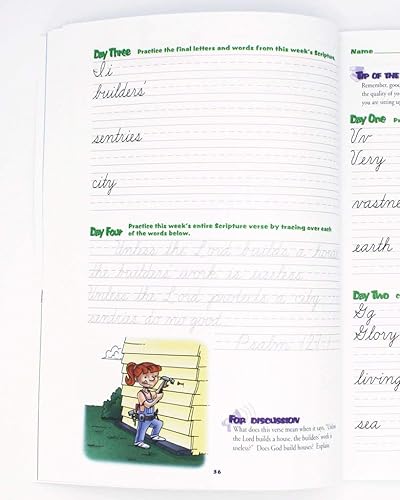 Day Three Practice the final letters and words from this week's Scripture.
Ii
builders'
sentries
city
Day Four Practice this week's entire Scripture verse by tracing over each
of the words below.
Unless the Lord builds a house
the builders work is useless.
Unless the Lord protects a city
sentries do no good.
Psalm 127:1
For Discussion
What does this verse mean when it says, "Unless
the Lord builds a house, the builders' work is
useless?" Does God build houses? Explain
36
Name
Tip of the
Remember, good
the quality of yo
you are sitting up
Day One
Vv
Very
vastne
earth
Day Two
Gg
Glory
living
sea